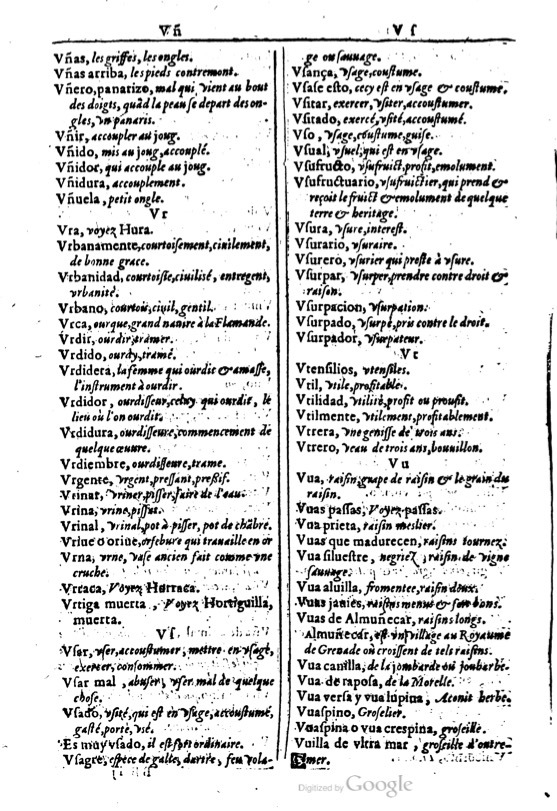 Vñ
Vñas, les griffes, les ongles.
Vñas arriba, les pieds contremont.
Vñero, panarizo, mal qui vient au bout
des doigts, quād la peau se depart des on-
gles, vn panaris.
Vñir, accoupler au joug.
Vñido, mis au joug, accouplé.
Vñidor, qui accouple au joug.
Vñidura, accouplement.
Vñuela, petit ongle.
Vr
Vra, voyez Hura.
Vrbanamente, courtoisement, ciuilement,
de bonne grace.
Vrbanidad, courtoisie, ciuilisé, entregent,
vrbanité.
Vrbano, courtois, ciuil, gentil.
Vrca, ourque, grand nauire à la Flamande.
Vrdir, ourdir, tramer.
Vrdido, ourdy, tramé.
Vrdidera, la femme qui ourdit & amasse,
l'instrument à ourdir.
Vrdidor, ourdisseur, celuy qui ourdit, le
lieu où l'on ourdit.
Vrdidura, ourdisseure, commencement de
quelque œuure.
Vrdiembre, ourdisseure, trame.
Vrgente, vrgent, pressant, pressif.
Vrinar, vriner, pisser, faire de l'eau.
Vrina, vrine, pissat.
Vrinal, vrinal, pot à pisser, pot de chābre.
Vriue o oriue, orfebure qui trauaille en or
Vrna, vrne, vase ancien fait comme vne
cruche.
Vrraca, Voyez Horraca.
Vrtiga muerta, Voyez Hortiguilla,
muerta.
Vs
Vsar, vser, accoustumer, mettre en vsage,
exercer, consommer.
Vsar mal, abuser, vser mal de quelque
chose.
Vsado, vsité, qui est en vsage, accoustumé,
gasté, porté, vsé.
Es muy vsado, il est fort ordinaire.
Vsagre, espece de galle, dartre, feu vola-
Vs
ge ou sauuage.
Vsança, vsage, coustume.
Vsase esto, cecy est en vsage & coustume.
Vsitar, exercer, vsiter, accoustumer.
Vsitado, exercé, vsité, accoustumé.
Vso, vsage, coustume, guise.
Vsual, vsuel, qui est en vsage.
Vsufructo, vsufruict, profit, emolument.
Vsufructuario, vsufruictier, qui prend &
reçoit le fruict & emolument de quelque
terre & heritage.
Vsura, vsure, interest.
Vsurario, vsuraire.
Vsurero, vsurier qui preste à vsure.
Vsurpar, vsurper, prendre contre droit &
raison.
Vsurpacion, vsurpation.
Vsurpado, vsurpé, pris contre le droit.
Vsurpador, vsurpateur.
Vt
Vtensilios, vtensiles.
Vtil, vtile, profitable.
Vtilidad, vtilité, profit ou proufit.
Vtilmente, vtilement, profitablement.
Vtrera, vne genisse de trois ans.
Vtrero, veau de trois ans, bouuillon.
Vu
Vua, raisin, grape de raisin & le grain du
raisin.
Vuas passas, Voyez passas.
Vua prieta, raisin meslier.
Vuas que madurecen, raisins tournez.
Vua siluestre, negriez, raisin de vigne
sauuage.
Vua aluilla, fromentee, raisin doux.
Vuas janies, raisins menus & fort bons.
Vuas de Almuñecar, raisins longs.
Almuñecar, est vn village au Royaume
de Grenade où croissent de tels raisins.
Vua canilla, de la jombarde ou joubarbe.
Vua de raposa, de la Morelle.
Vua versa y vua lupina, Aconit herbe.
Vuaspino, Groselier.
Vuaspina o vua crespina, groseille.
Vuilla de vltra mar, groseille d'outre-
mer.
Digitized by Google